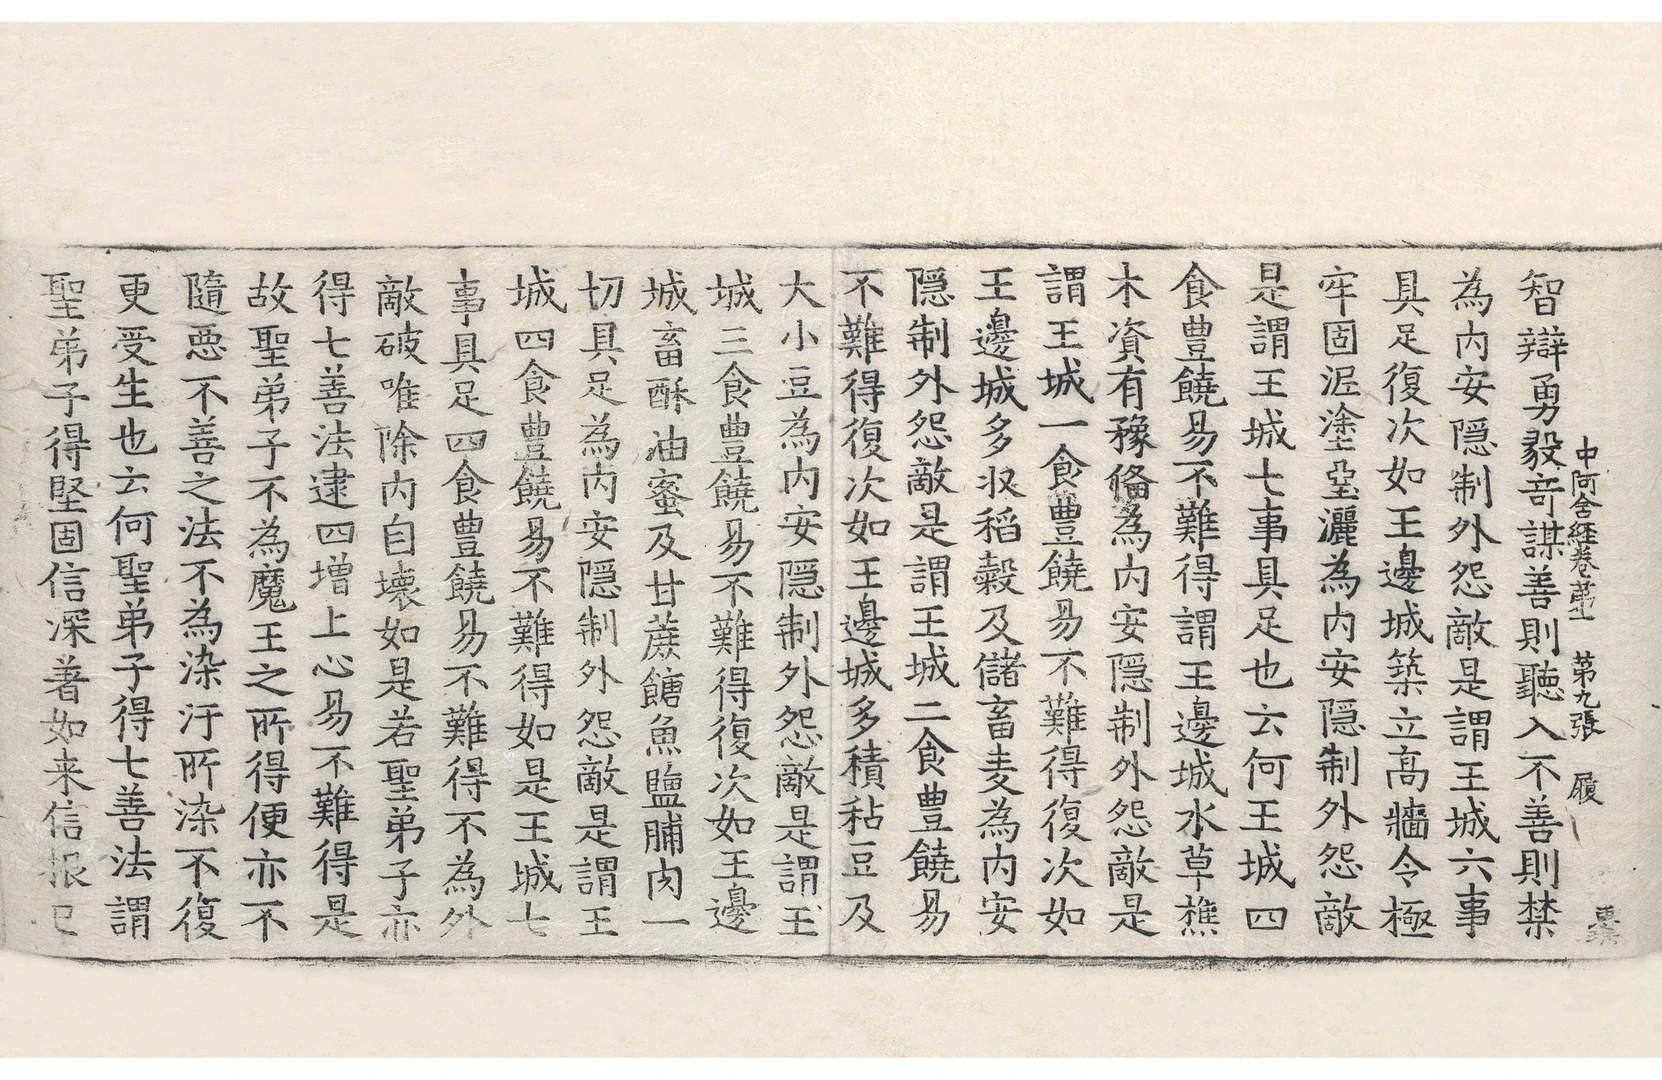 中阿含經卷第一 第九張 履
智辯勇毅奇謀善則聽入不善則禁
為內安隠制外怨敵是謂王城六事
具足復次如王邊城築立高牆令極
牢固泥塗堊灑為內安隠制外怨敵
是謂王城七事具足也云何王城四
食豊饒易不難得謂王邊城水草樵
木資有豫俻為內安隠制外怨敵是
謂王城一食豊饒易不難得復次如
王邊城多収稻穀及儲畜麦為內安
隠制外怨敵是謂王城二食豊饒易
不難得復次如王邊城多積秥豆及
大小豆為內安隠制外怨敵是謂王
城三食豊饒易不難得復次如王邊
城畜酥油蜜及甘蔗餹魚鹽脯肉一
切具足為內安隠制外怨敵是謂王
城四食豊饒易不難得如是王城七
事具足四食豊饒易不難得不為外
敵破唯除內自壊如是若聖弟子亦
得七善法逮四增上心易不難得是
故聖弟子不為魔王之所得便亦不
隨惡不善之法不為染汙所染不復
更受生也云何聖弟子得七善法謂
聖弟子得堅固信深著如来信根已